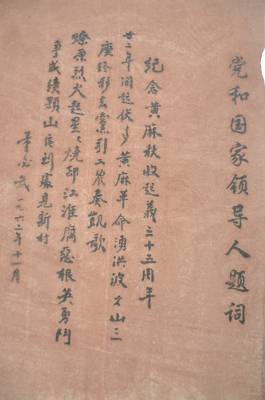 党和国家领导人题词
纪念黄麻秋收起义三十五周年
廿二年间起伏多黄麻革命湧洪波大山三
度终移去党引工农奏凯歌
燎原烈火起星星烧却江淮腐恶根英勇鬥
争成绩顕山区到处見新村
董必武一九六二年十一月